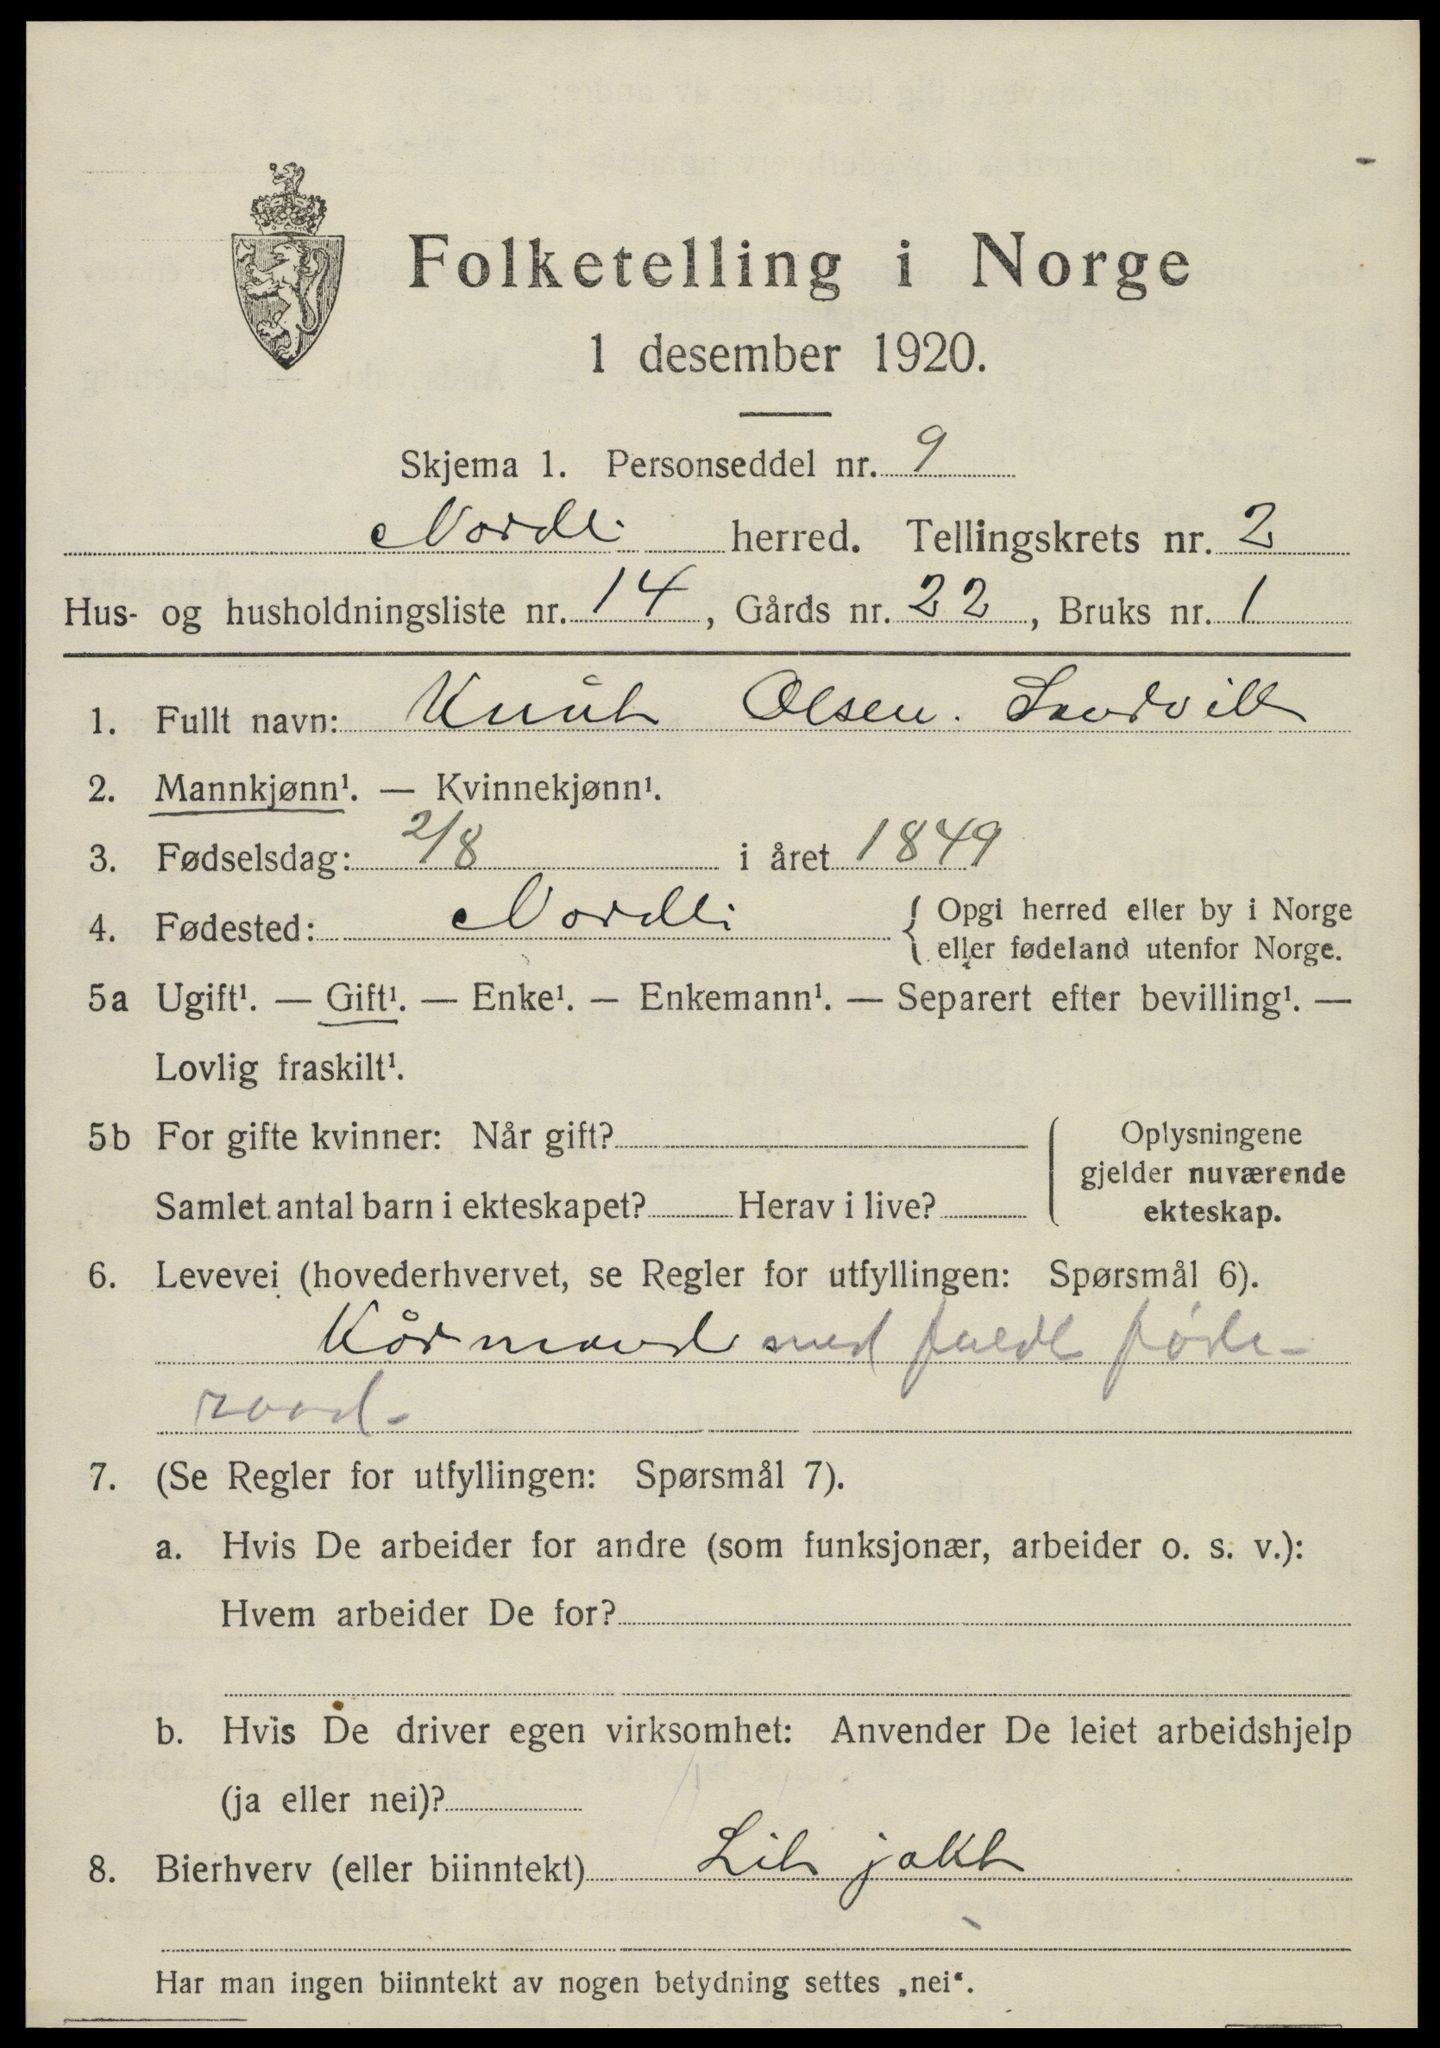 Folketelling i Norge
1 desember 1920.
Skjema 1. Personseddel nr. 9
Nordli herred. Tellingskrets nr. 2
Hus- og husholdningsliste nr. 14, Gårds nr. 22, Bruks nr. 1
1. Fullt navn: Knut Olsen. Sandvik
2. Mannkjønn¹. — Kvinnekjønn¹.
3. Fødselsdag: 2/8 i året 1849
4. Fødested: Nordli { Opgi herred eller by i Norge
eller fødeland utenfor Norge.
5a Ugift¹. — Gift¹. — Enke¹. — Enkemann¹. — Separert efter bevilling¹. —
Lovlig fraskilt¹.
5b For gifte kvinner: Når gift? Oplysningene
gjelder nuværende
Samlet antal barn i ekteskapet? Herav i live? ekteskap.
6. Levevei (hovederhvervet, se Regler for utfyllingen: Spørsmål 6).
Kårmand med fuldt føde-
raad-
7. (Se Regler for utfyllingen: Spørsmål 7).
a. Hvis De arbeider for andre (som funksjonær, arbeider o. s. v.):
Hvem arbeider De for?
b. Hvis De driver egen virksomhet: Anvender De leiet arbeidshjelp
(ja eller nei)?
8. Bierhverv (eller biinntekt) Lit jakt
Har man ingen biinntekt av nogen betydning settes „nei“.